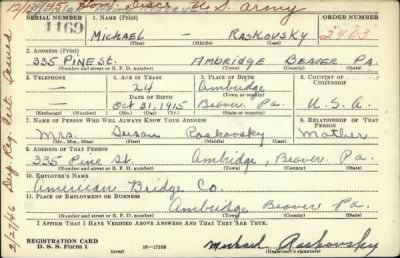 Hon. Disch. U.S. Army
SERIAL NUMBER 1. NAME (Print) ORDER NUMBER
1169 MICHAEL — RASKOVSKY 2463
(First) (Middle) (Last)
2. ADDRESS (Print)
335 PINE ST. AMBRIDGE BEAVER PA.
(Number and street or R. F. D. number) (Town) (County) (State)
3. TELEPHONE 4. AGE IN YEARS 5. PLACE OF BIRTH 6. COUNTRY OF CITIZENSHIP
— 24 Ambridge
DATE OF BIRTH (Town or county)
— Oct 31, 1915 Beaver, Pa. U.S.A.
(Exchange) (Number) (Mo.) (Day) (Yr.) (State or country)
7. NAME OF PERSON WHO WILL ALWAYS KNOW YOUR ADDRESS 8. RELATIONSHIP OF THAT PERSON
Mrs. Susan Raskovsky Mother
(Mr., Mrs., Miss) (First) (Middle) (Last)
9. ADDRESS OF THAT PERSON
335 Pine St. Ambridge, Beaver, Pa.
(Number and street or R. F. D. number) (Town) (County) (State)
10. EMPLOYER'S NAME
American Bridge Co.
11. PLACE OF EMPLOYMENT OR BUSINESS
Ambridge Beaver Pa.
(Number and street or R. F. D. number) (Town) (County) (State)
I AFFIRM THAT I HAVE VERIFIED ABOVE ANSWERS AND THAT THEY ARE TRUE.
REGISTRATION CARD
D. S. S. Form 1 (over) 16—17105 Michael Raskovsky
(Registrant's signature)
2/27/46 Dup. Reg. Cert. Issued